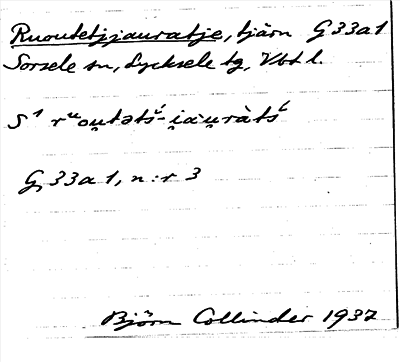 Ruoutetjjauratje, tjärn G 33a1
Sorsele sn, Lycksele tg, Vbt l.
S¹ rᵘou̯tətś-i̯äu̯ràtś
G 33a1, n:r 3
Björn Collinder 1937